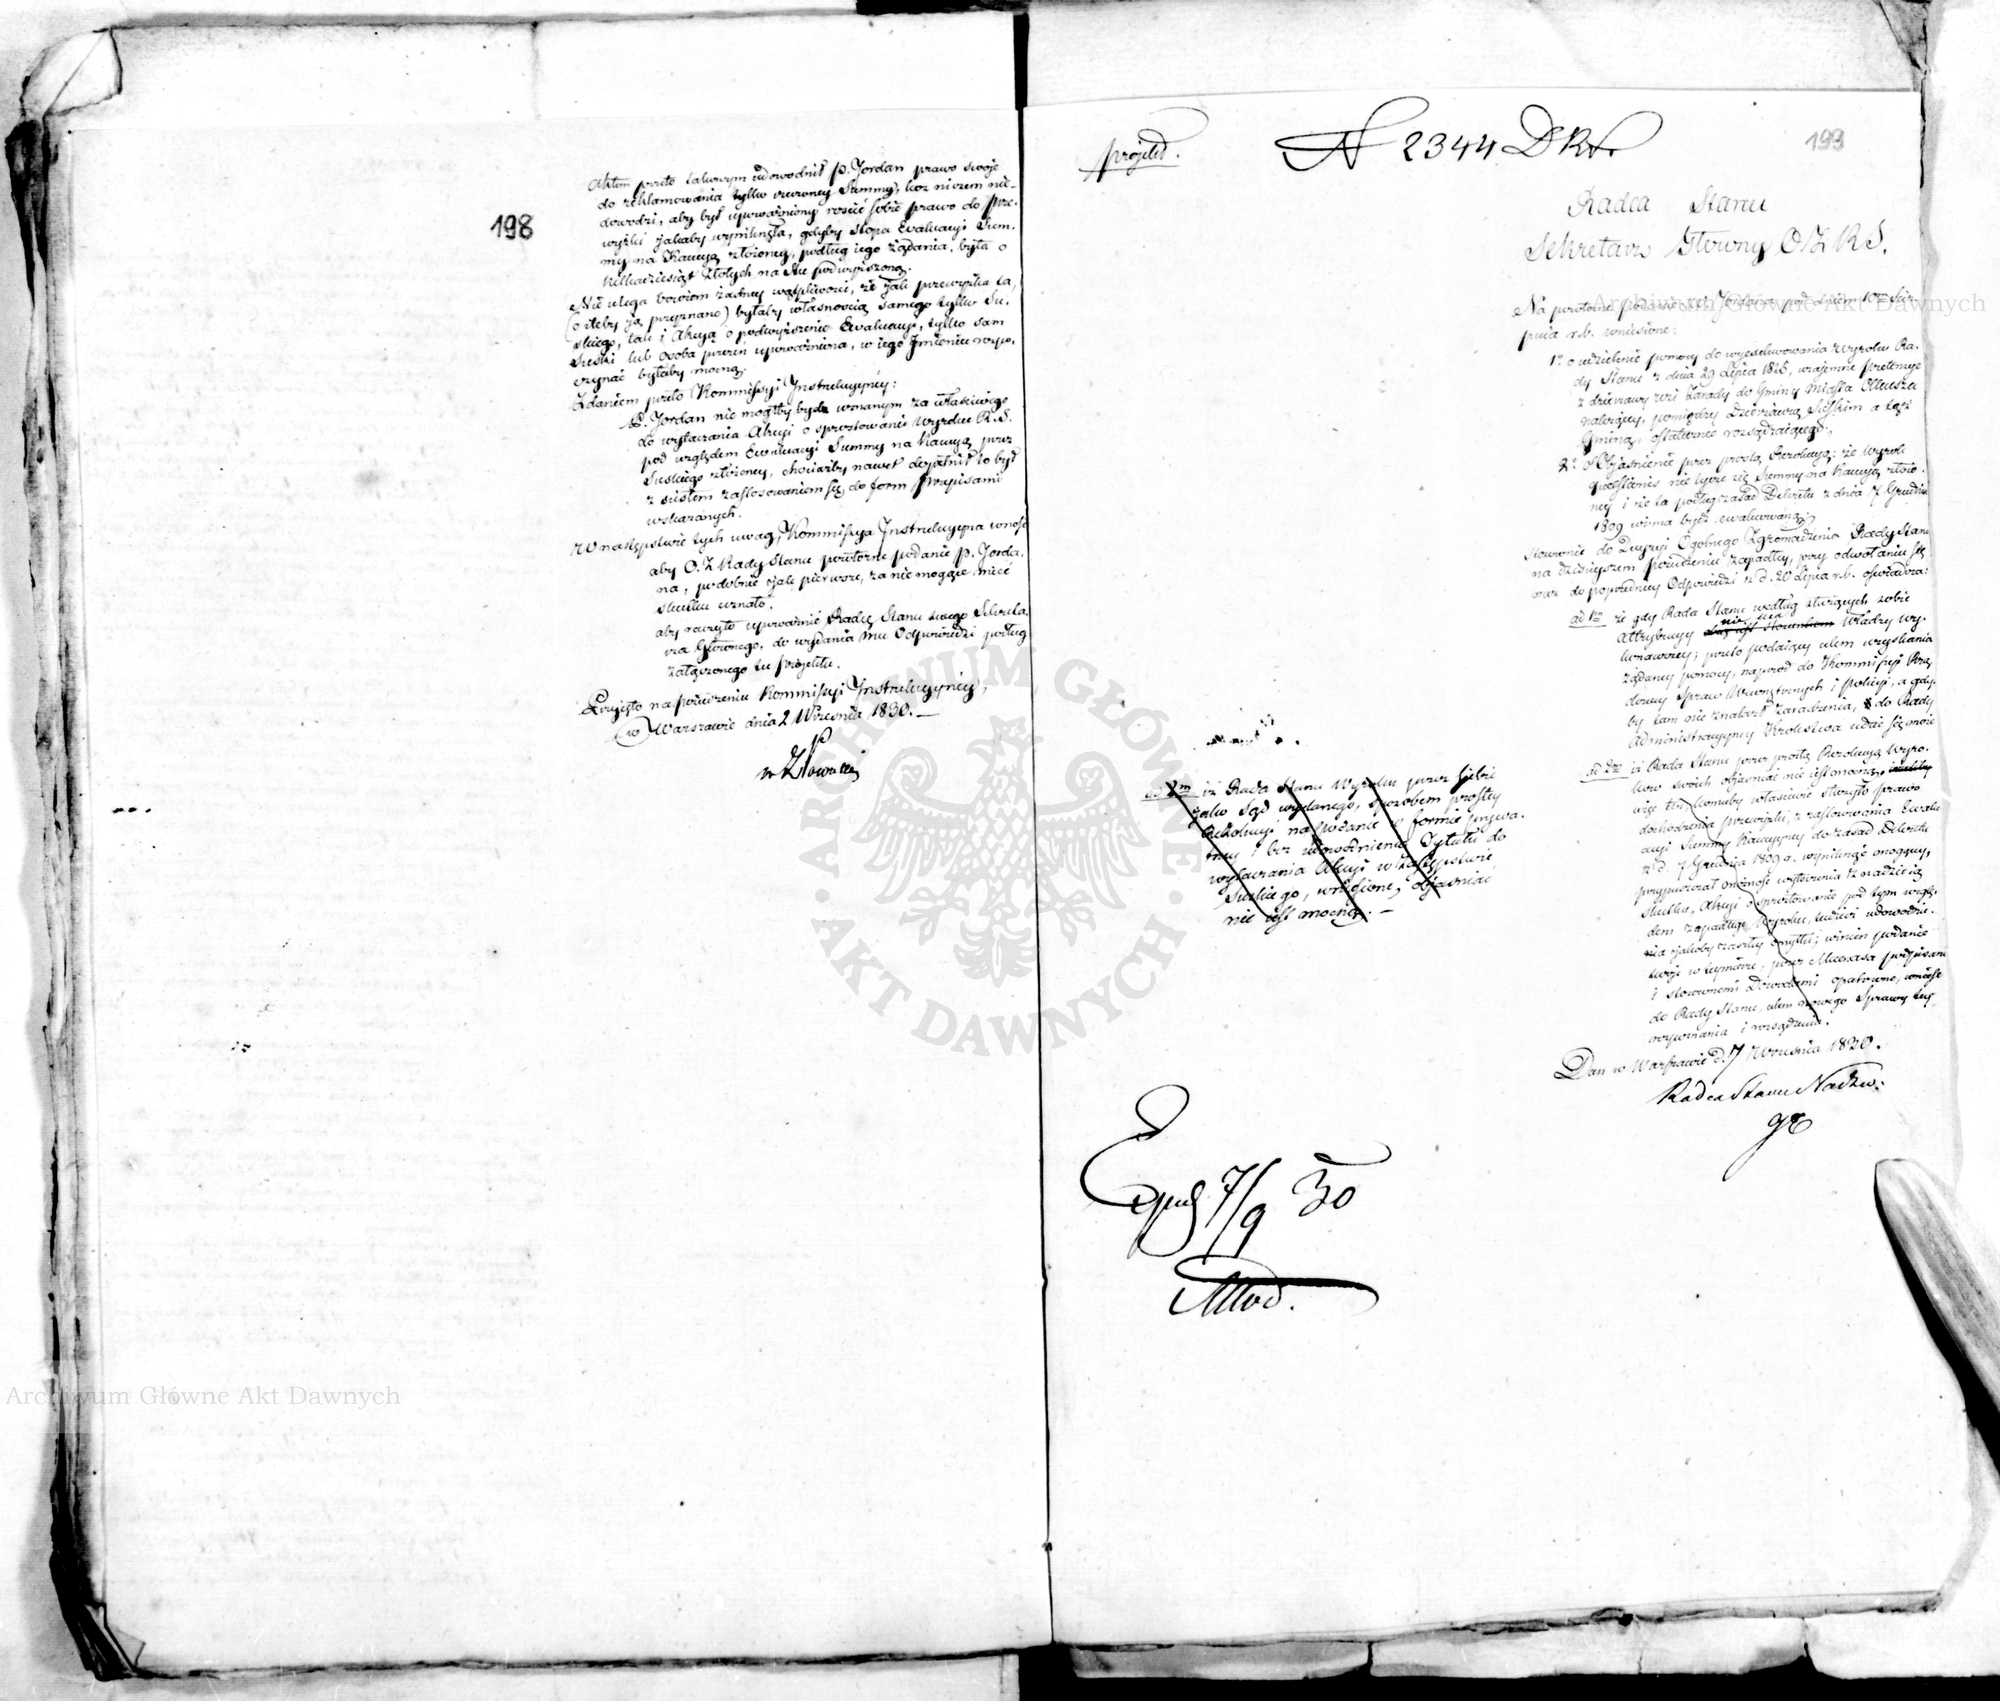 198
Aktem przeto takowym udowodnił P. Jordan prawo swoje
do reklamowania tylko rzeczoney Summy, lecz niczem nie-
dowodzi, aby był upoważniony rościć sobie prawo do prze-
wyżki jakaby wyniknęła, gdyby stopa Ewaluacyi Sum-
my na Kaucyą złożoney, podług iego żądania, była o
kilkadziesiąt Złotych na podwyższoną.
Nie ulega bowiem żadney wątpliwości, że jak przewyżka ta,
(o ileby ją przyznano) byłaby własnością samego tylko Su-
skiego, tak i Akcyą o podwyższenie Ewaluacyi, tylko sam
Suski lub osoba przezeń upoważniona, w iego Imieniu rozpo-
czynać byłaby mocną.
Zdaniem przeto Kommissyi Instrukcyyney:
P. Jordan nie mógłby bydź uznanym za właściwego
do wytaczania Akcyi o sprostowanie Wyroku R. S.
pod względem Ewaluacyi Summy na Kaucyą przez
Suskiego złożoney, chociażby nawet dopełnił to był
z ścisłem zastosowaniem się do form Przepisami
wskazanych.
W następstwie tych uwag, Kommissya Instrukcyyna wnosi
aby O. Z. Rady Stanu powtórne podanie P. Jorda-
na, podobnie jak pierwsze, za nie mogące mieć
skutku uznało.
aby raczyło upoważnić Radcę Stanu swego Sekreta-
rza Głównego, do wydania mu Odpowiedzi podług
załączonego tu projektu.
Przyjęto na posiedzeniu Kommissyi Instrukcyyney,
w Warszawie dnia 2 Września 1830. —
projekt.
N 2344 DRS.
193
Radca Stanu
Sekretarz Główny O Z R S.
Na powtórne podanie JP. Jordana pod dniem 10m Sier-
pnia r.b. wniesione:
1o o udzielenie pomocy do wyexekwowania Wyroku Ra-
dy Stanu z dnia 29 Lipca 1828, wzajemne pretensye
z dzierżawy do Gminy Miasta Olkusza
należącey, pomiędzy Dzierżawcą Suskim a tąż
Gminą, ostatecznie rozsądzaiącego;
2o o Objaśnienie przez prostą Rezolucyą: że Wyrok
questionis nie tycze się Summy na Kaucyą złożo-
ney i że ta podług zasad Dekretu z dnia 17 Grudnia
1809 winna bydź ewaluowaną;
stosownie do Decyzyi Ogólnego Zgromadzenia Rady Stanu
na dzisieyszem posiedzeniu zapadłey, przy odwołaniu się
oraz do poprzedniey Odpowiedzi z d. 20 Lipca r.b. oświadcza:
ad 1m że gdy Rada Stanu według służących sobie
Attrybucyy nie ma Władzy wy-
konawczey; przeto podaiący celem uzyskania
żądaney pomocy, naprzód do Kommissyi Rzą-
dowey Spraw Wewnętrznych i Policyi, a gdy-
by tam nie znalazł zaradzenia, do Rady
Administracyyney Królestwa udać się może
ad 2m iż Rada Stanu przez prostą Rezolucyą Wyro-
ków swoich objaśniać nie iest mocną,
więc też komuby właściwie służyło prawo
dochodzenia przewyżki, z zastosowania Ewalu-
acyi Summy Kaucyyney do zasad Dekretu
z d. 17 Grudnia 1809 r. wyniknąć mogącey,
przypuszczał możność wytoczenia z nadzieią
skutku, Akcyi o sprostowanie pod tym wzglę-
dem zapadłego Wyroku, tudzież udowodnie-
nia jakoby zaszłey omyłki; winien podanie
swoje w tey mierze, przez Mecenasa podpisane
i stosownemi Dowodami opatrzone, wnieść
do Rady Stanu, celem nowego Sprawy tey
i rozsądzenia.
Dan w Warszawie d. 7 Września 1830.
Radca Stanu Nadzw:
ad 2m iż Rada Stanu Wyroku przez siebie
jako Sąd wydanego, sposobem prostey
Rezolucyi na podanie w formie prywa-
tney i bez udowodnienia Tytułu do
wytaczania Akcyi w zastępstwie
Suskiego, wniesione, objaśniać
nie iest mocną. —
Exped 7/9 30
Archiwum Główne Akt Dawnych
Archiwum Główne Akt Dawnych
ARCHIWUM GŁÓWNE
AKT DAWNYCH